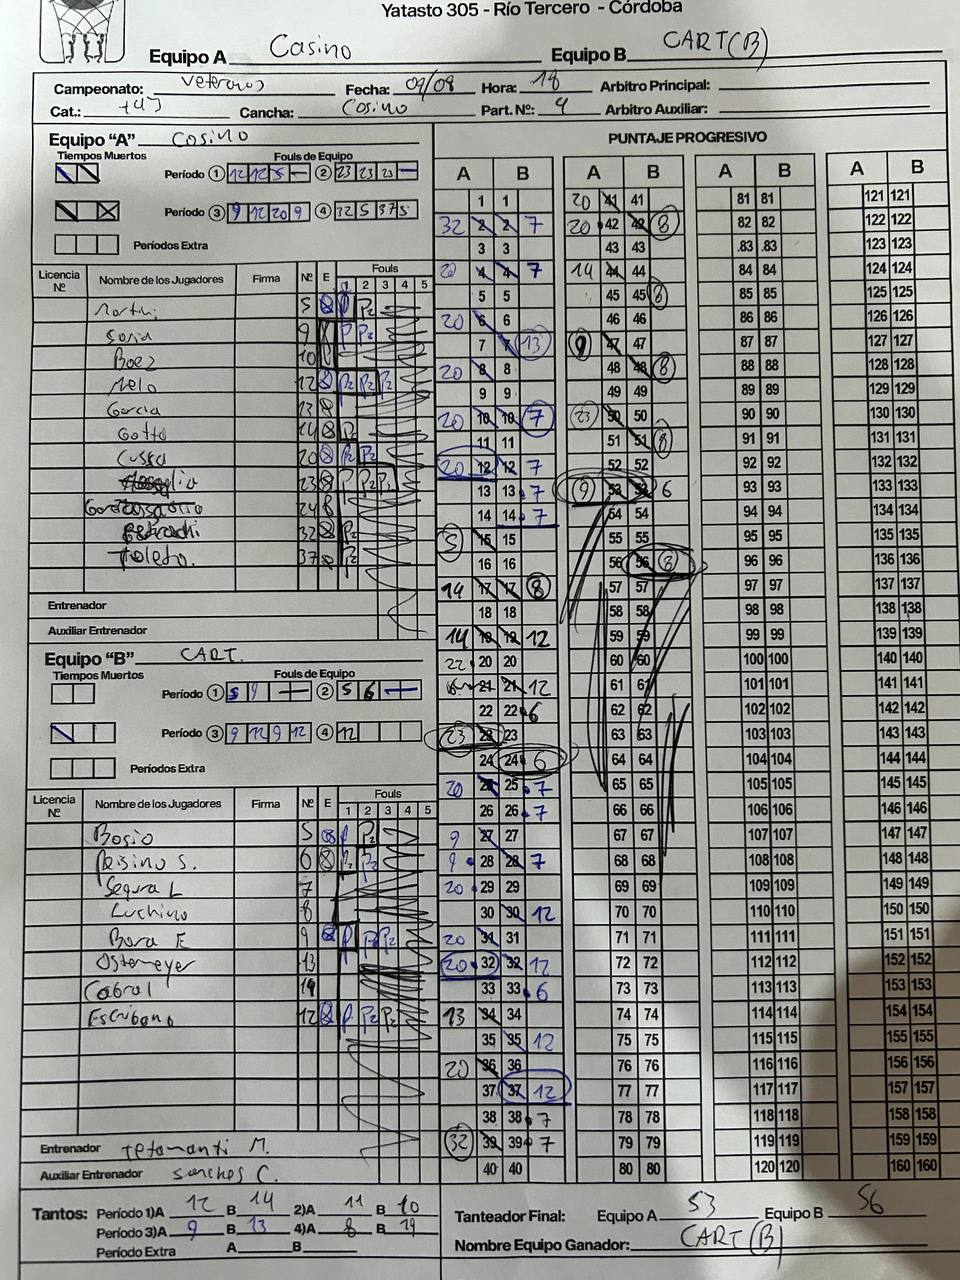 Yatasto 305 - Río Tercero - Córdoba
Equipo A Casino Equipo B CART(B)
Campeonato: Veteranos Fecha: 09/08 Hora: 18 Arbitro Principal:
Cat.: +45 Cancha: Casino Part. Nº: 4 Arbitro Auxiliar:
Equipo "A" Cosino
Tiempos Muertos Fouls de Equipo
Período 1 12 12 5 — 2 23 23 20 —
Período 3 9 12 20 9 4 32 5 37 5
Períodos Extra
Licencia Nº Nombre de los Jugadores Firma Nº E Fouls
1 2 3 4 5
Martini 5 P P2
Soria 9 P P2
Baez 10
Melo 12 P2 P2 P2
Garcia 13
Gotto 14 P2
Cussa 20 P2 P2
23 P P2 P2
24
32 P2
Toledo. 37 P2
Entrenador
Auxiliar Entrenador
Equipo "B" CART.
Tiempos Muertos Fouls de Equipo
Período 1 5 9 — 2 5 6 —
Período 3 9 12 9 12 4 12
Períodos Extra
Licencia Nº Nombre de los Jugadores Firma Nº E Fouls
1 2 3 4 5
Bosio 5 P P2
Peisino S. 6 P2 P2
Segura L 7
Luchino 8
Bora E 9 P P2 P2
Ostemeyer 13
Cabral 14
Escribano 12 P P2 P2
Entrenador Tetamanti M.
Auxiliar Entrenador Sanches C.
Tantos: Período 1)A 12 B 14 2)A 11 B 10
Período 3)A 9 B 13 4)A 8 B 19
Período Extra A B
PUNTAJE PROGRESIVO
A B
1 1
32 2 2 7
3 3
20 4 4 7
5 5
20 6 6
7 7 13
20 8 8
9 9
20 10 10 7
11 11
20 12 12 7
13 13 7
14 14 7
5 15 15
16 16
14 17 17 8
18 18
14 19 19 12
22 20 20
21 21 12
22 22 6
23 23 23
24 24 6
20 25 25 7
26 26 7
9 27 27
9 28 28 7
20 29 29
30 30 12
20 31 31
20 32 32 12
33 33 6
13 34 34
35 35 12
20 36 36
37 37 12
38 38 7
32 39 39 7
40 40
A B
20 41 41
20 42 42 8
43 43
14 44 44
45 45 8
46 46
9 47 47
48 48 8
49 49
23 50 50
51 51 8
52 52
9 53 53 6
54 54
55 55
56 56 8
57 57
58 58
59 59
60 60
61 61
62 62
63 63
64 64
65 65
66 66
67 67
68 68
69 69
70 70
71 71
72 72
73 73
74 74
75 75
76 76
77 77
78 78
79 79
80 80
A B
81 81
82 82
83 83
84 84
85 85
86 86
87 87
88 88
89 89
90 90
91 91
92 92
93 93
94 94
95 95
96 96
97 97
98 98
99 99
100 100
101 101
102 102
103 103
104 104
105 105
106 106
107 107
108 108
109 109
110 110
111 111
112 112
113 113
114 114
115 115
116 116
117 117
118 118
119 119
120 120
A B
121 121
122 122
123 123
124 124
125 125
126 126
127 127
128 128
129 129
130 130
131 131
132 132
133 133
134 134
135 135
136 136
137 137
138 138
139 139
140 140
141 141
142 142
143 143
144 144
145 145
146 146
147 147
148 148
149 149
150 150
151 151
152 152
153 153
154 154
155 155
156 156
157 157
158 158
159 159
160 160
Tanteador Final: Equipo A 53 Equipo B 56
Nombre Equipo Ganador: CART(B)